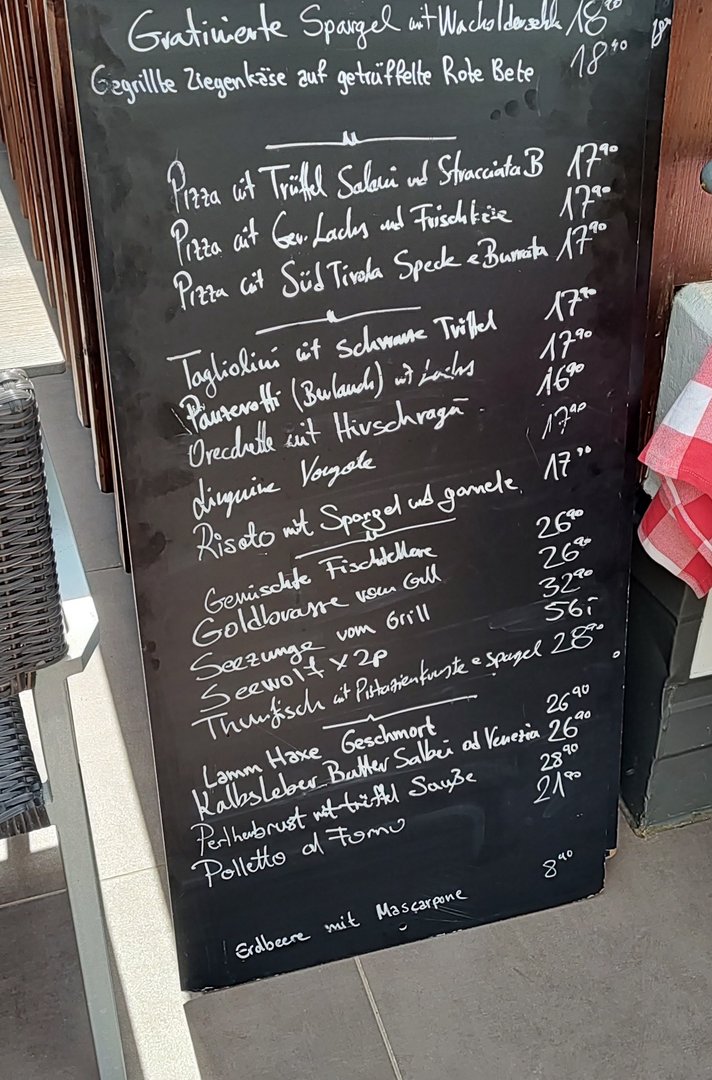 Gratinierte Spargel mit Wacholder 18,90
Gegrillte Ziegenkäse auf getrüffelte Rote Bete 18,90
Pizza mit Trüffel Salami und Stracciata B 17,90
Pizza mit Ger. Lachs und Frischkäse 17,90
Pizza mit Süd Tirola Speck e Burrata 17,90
Tagliolini mit Schwarze Trüffel 17,90
Panzerotti (Berlauch) mit Lachs 17,90
Orecchette mit Hirschragu 16,90
Linguine Vongole 17,90
Risoto mit Spargel und garnele 17,90
Gemischte Fischtellare 26,90
Goldbrasse vom Grill 26,90
Seezunge vom Grill 32,90
Seewolf x 2p 56,-
Thunfisch mit Pistazienkruste e spargel 28,90
Lamm Haxe Geschmort 26,90
Kalbsleber Butter Salbei od Venezia 26,90
Perlhuhbrust mit trüffel Sauße 28,90
Polletto al Forno 21,90
Erdbeere mit Mascarpone 8,90